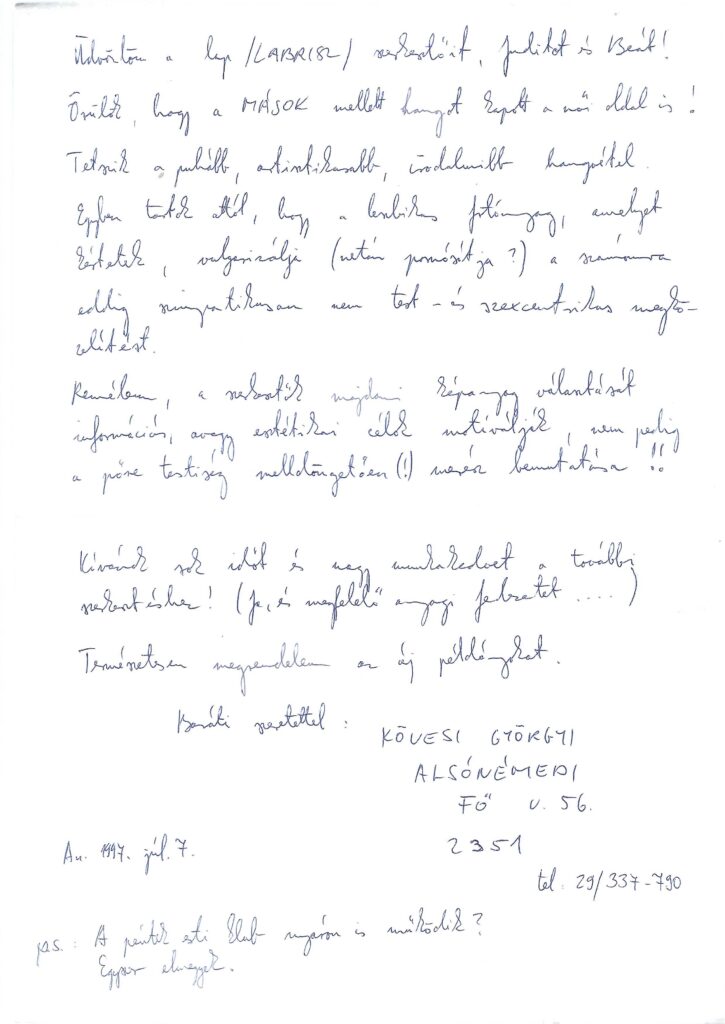 Üdvözlöm a lap /LABRISZ/ szerkesztőit, Juditot és Beát!
Örülök, hogy a MÁSOK mellett hangot kapott a női oldal is!
Tetszik a puhább, artisztikusabb, irodalmibb hangvétel.
Egyben tartok attól, hogy a leszbikus fotóanyag, amelyet
kértetek, vulgarizálja (netán pornósítja?) a számomra
eddig szimpatikusan nem test- és szexcentrikus megkö-
zelítést.
Remélem, a szerkesztők majdani képanyag választását
információs, avagy esztétikai célok motiválják, nem pedig
a pőre testiség melldöngetően(!) merész bemutatása!!
Kívánok sok időt és nagy munkakedvet a további
szerkesztéshez! (Ja, és megfelelő anyagi fedezetet ....)
Természetesen megrendelem az új példányokat.
Baráti szeretettel:
KÖVESI GYÖRGYI
ALSÓNÉMEDI
FŐ U. 56.
2351
An. 1997. júl. 7.
tel: 29/337-790
ps.: A péntek esti klub nyáron is működik?
Egyszer elmegyek.